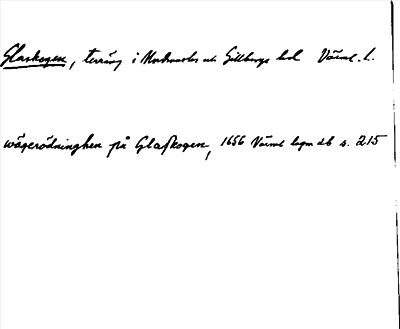 Glaskogen, terräng i Nordmarks och Gillbergs hd Värml. l.
wägerödninghen på Glaßkogen, 1656 Värml lagm db s. 215